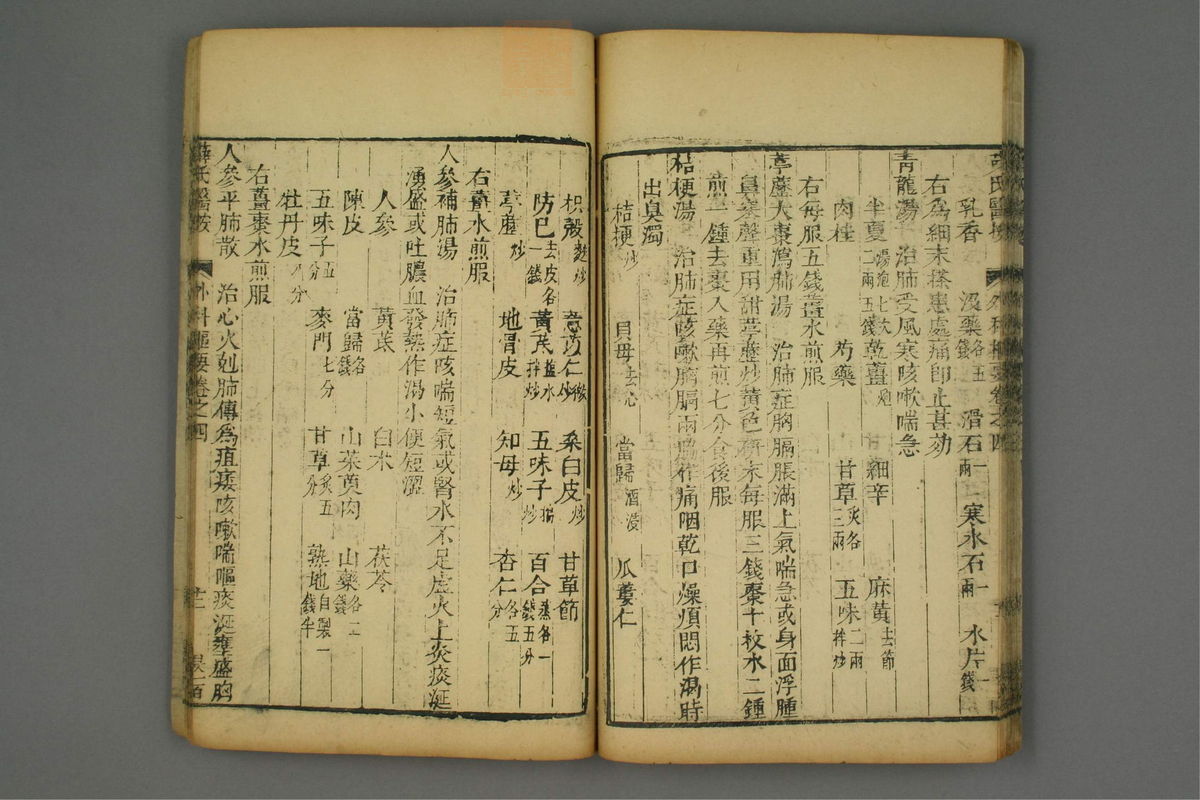 乳香 沒藥各五錢 滑石一兩 寒水石一兩 水片一錢
右爲細末搽患處痛即止甚効
青龍湯 治肺受風寒咳嗽喘急
半夏湯泡七次二兩五錢 乾薑炮 細辛 麻黃去節
肉桂 芍藥 甘草炙各三兩 五味二兩拌炒
右每服五錢薑水煎服
葶藶大棗瀉肺湯 治肺症胸膈脹滿上氣喘急或身面浮腫
鼻塞聲重用甜葶藶炒黃色研末每服三錢棗十枚水二鍾
煎一鍾去棗入藥再煎七分食後服
桔梗湯 治肺症咳嗽胸膈兩脇作痛咽乾口燥煩悶作渴時
出臭濁
桔梗炒 貝母去心 當歸酒浸 瓜蔞仁
枳殼麩炒 薏苡仁微炒 桑白皮炒 甘草節
防巳去皮各一錢 黃芪鹽水拌炒 五味子揣炒 百合蒸各一錢五分
葶藶炒 地骨皮 知母炒 杏仁各五分
右薑水煎服
人參補肺湯 治肺症咳喘短氣或腎水不足虛火上炎痰涎
湧盛或吐膿血發熱作渴小便短澀
人參 黃芪 白朮 茯苓
陳皮 當歸各一錢 山茱萸肉 山藥各二錢
五味子五分 麥門七分 甘草炙五分 熟地自製一錢半
牡丹皮八分
右薑棗水煎服
人參平肺散 治心火剋肺傳爲疽痿咳嗽喘嘔痰涎壅盛胸
薛氏醫按 外科樞要卷之四